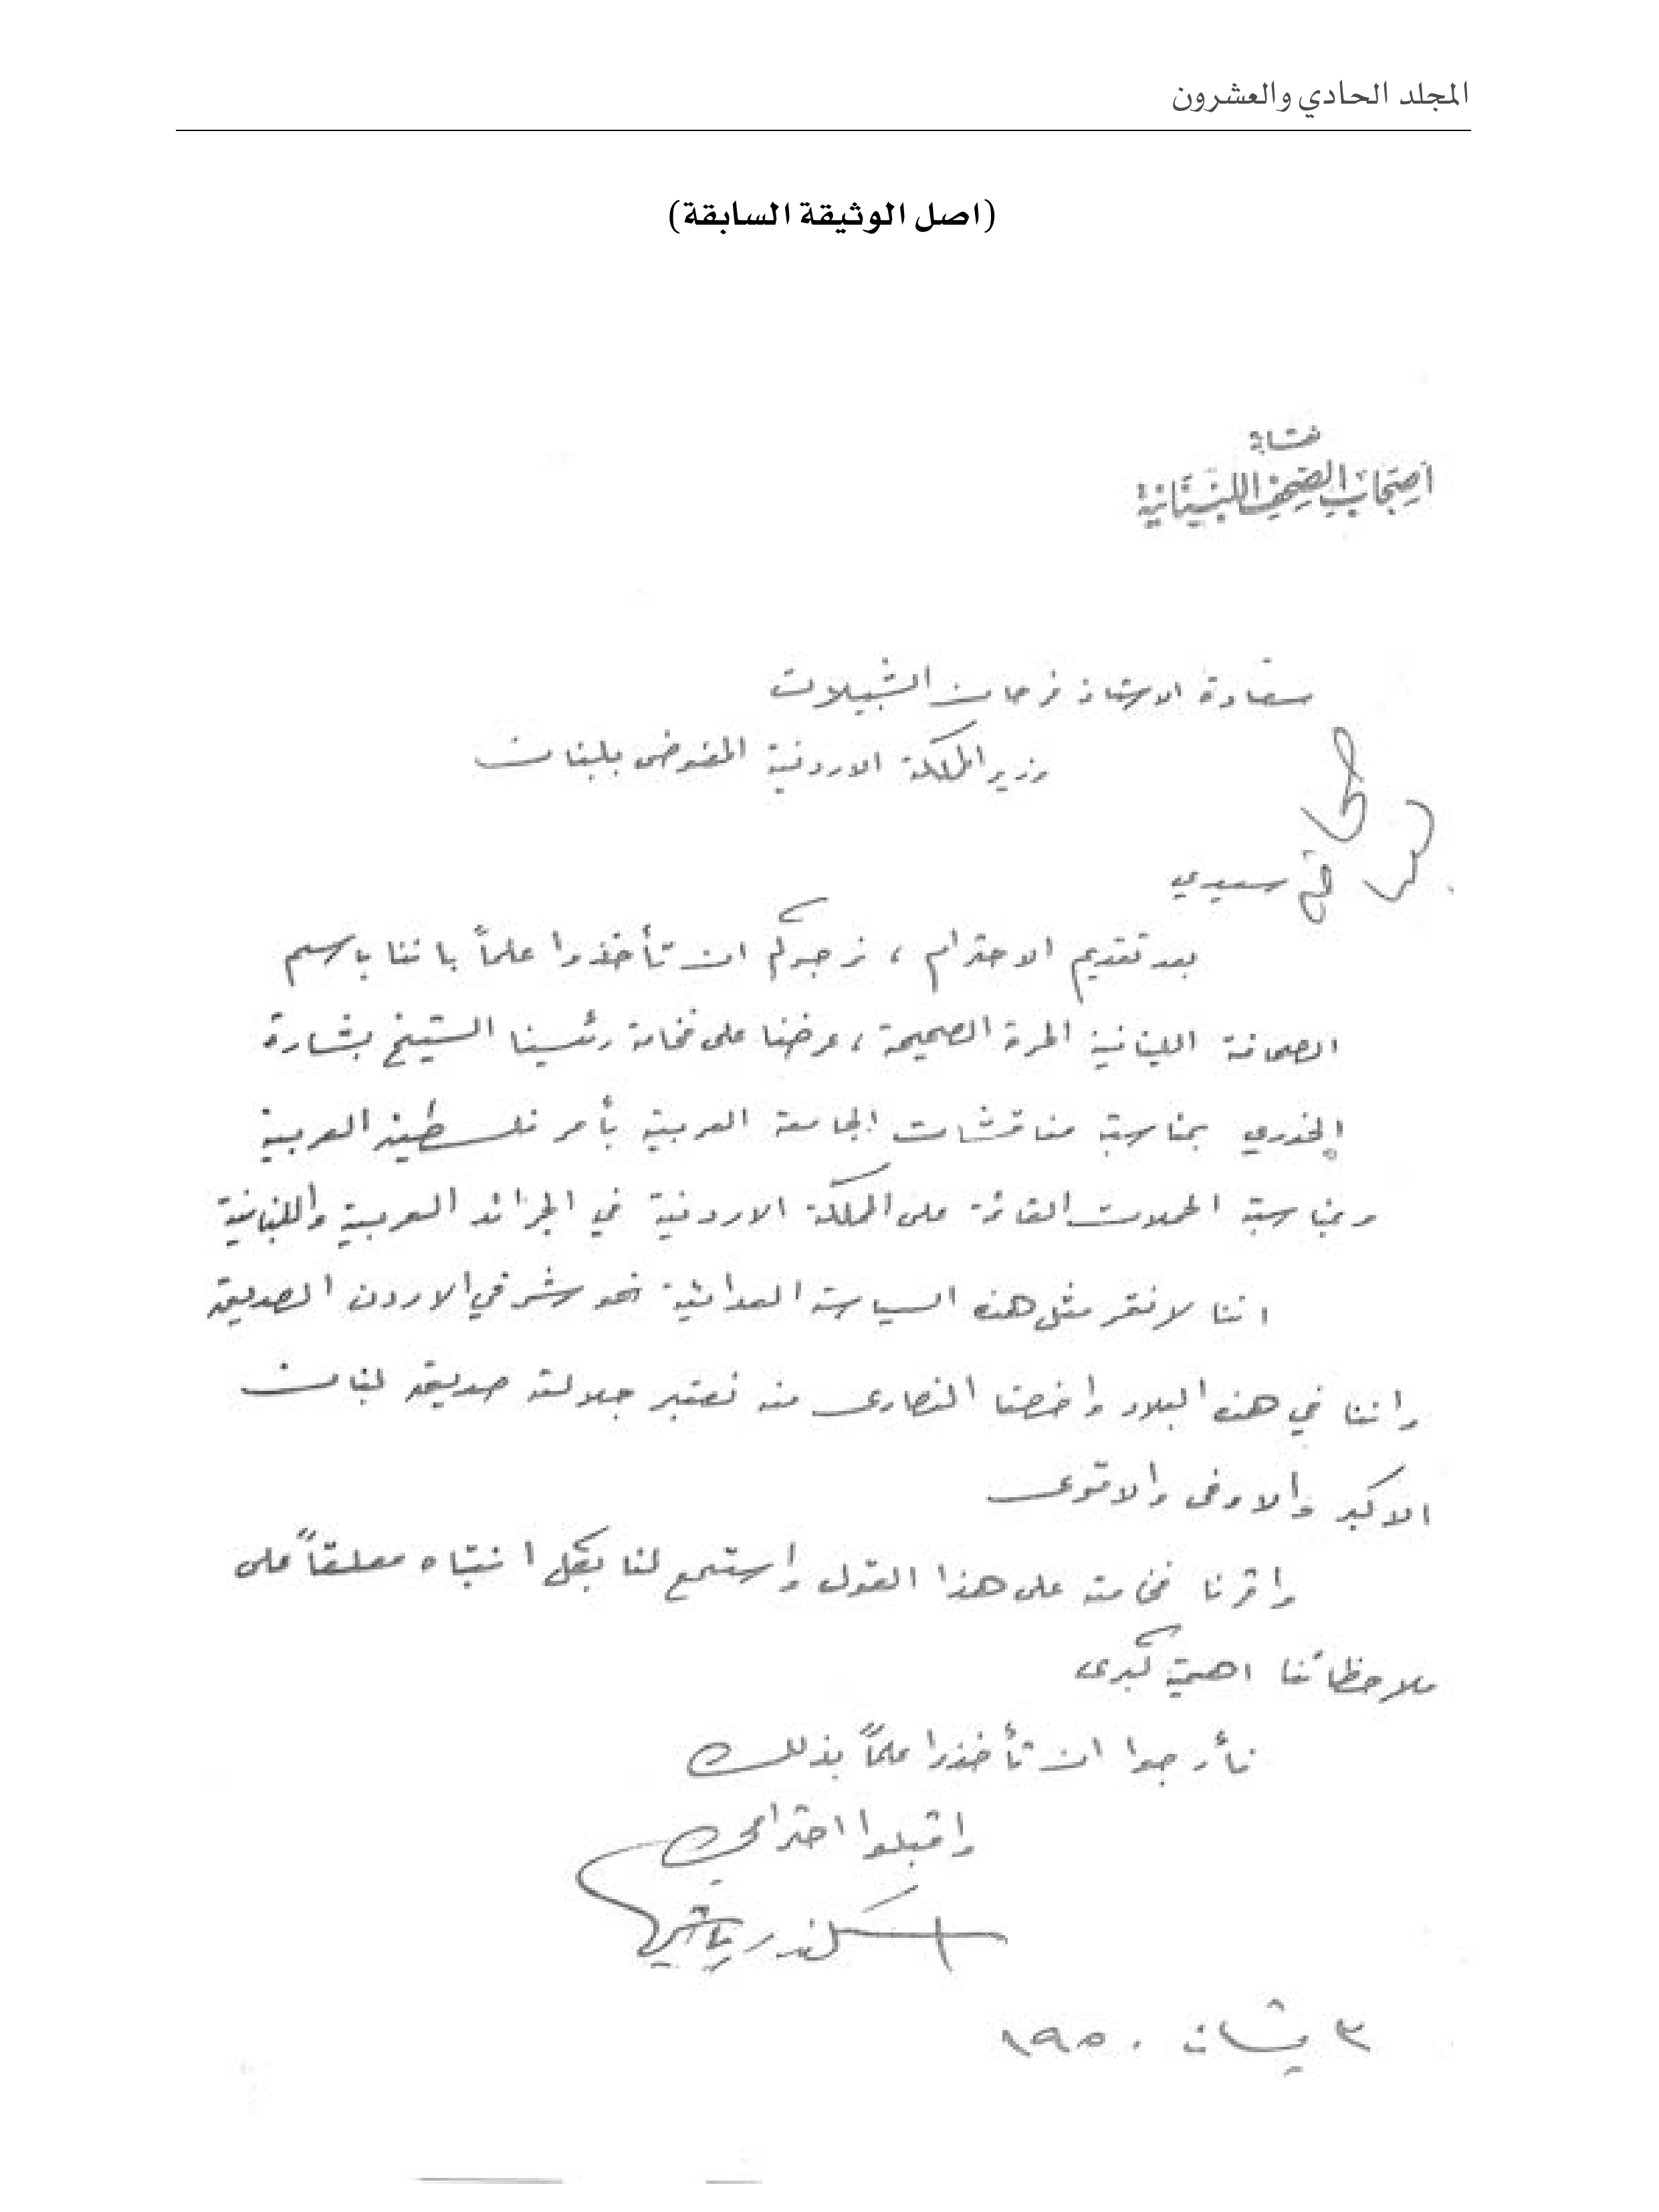 المجلد الحادي والعشرون
(اصل الوثيقة السابقة)
نقابة
اصحاب الصحف اللبنانية
سعادة الاستاذ فرحان الشبيلات
وزير المملكة الاردنية المفوض بلبنان
سيدي
بعد تقديم الاحترام ، نرجوكم ان تأخذوا علماً باننا باسم
الصحافة اللبنانية الحرة الصحيحة ، عرضنا على فخامة رئيسنا الشيخ بشارة
الخوري بمناسبة مناقشات الجامعة العربية بأمر فلسطين العربية
وبمناسبة الحملات القائمة على المملكة الاردنية في الجرائد العربية واللبنانية
اننا لا نقر مثل هذه السياسة العدائية نحو شرقي الاردن الصديقة
واننا في هذه البلاد واخصنا النصارى منه نعتبر جلالته صديق لبنان
الاكبر والاوفى والاقوى
واقرنا فخامته على هذا القول واستمع لنا بكل انتباه معلقاً على
ملاحظاتنا اهمية كبرى
فأرجوا ان تأخذوا علماً بذلك
واقبلوا احترامي
اسكندر رياشي
٣ نيسان ١٩٥٠